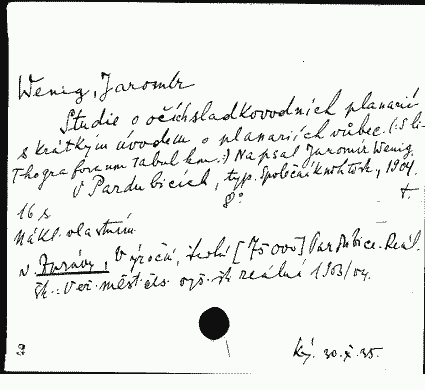 Wenig, Jaromír
Studie o očích sladkovodních planarií
s krátkým úvodem o planariích vůbec. (S li-
thografovanou tabulkou.) Napsal Jaromír Wenig.
V Pardubicích, typ. Společní knihtisk., 1904.
8° t.
16 s
Nákl. vlastním
v Zprávy, Výroční, školní [75000] Pardubice. Reál.
šk.: Veř. měst. čes. vyš. šk reální 1903/04.
Ký. 30.X.35.